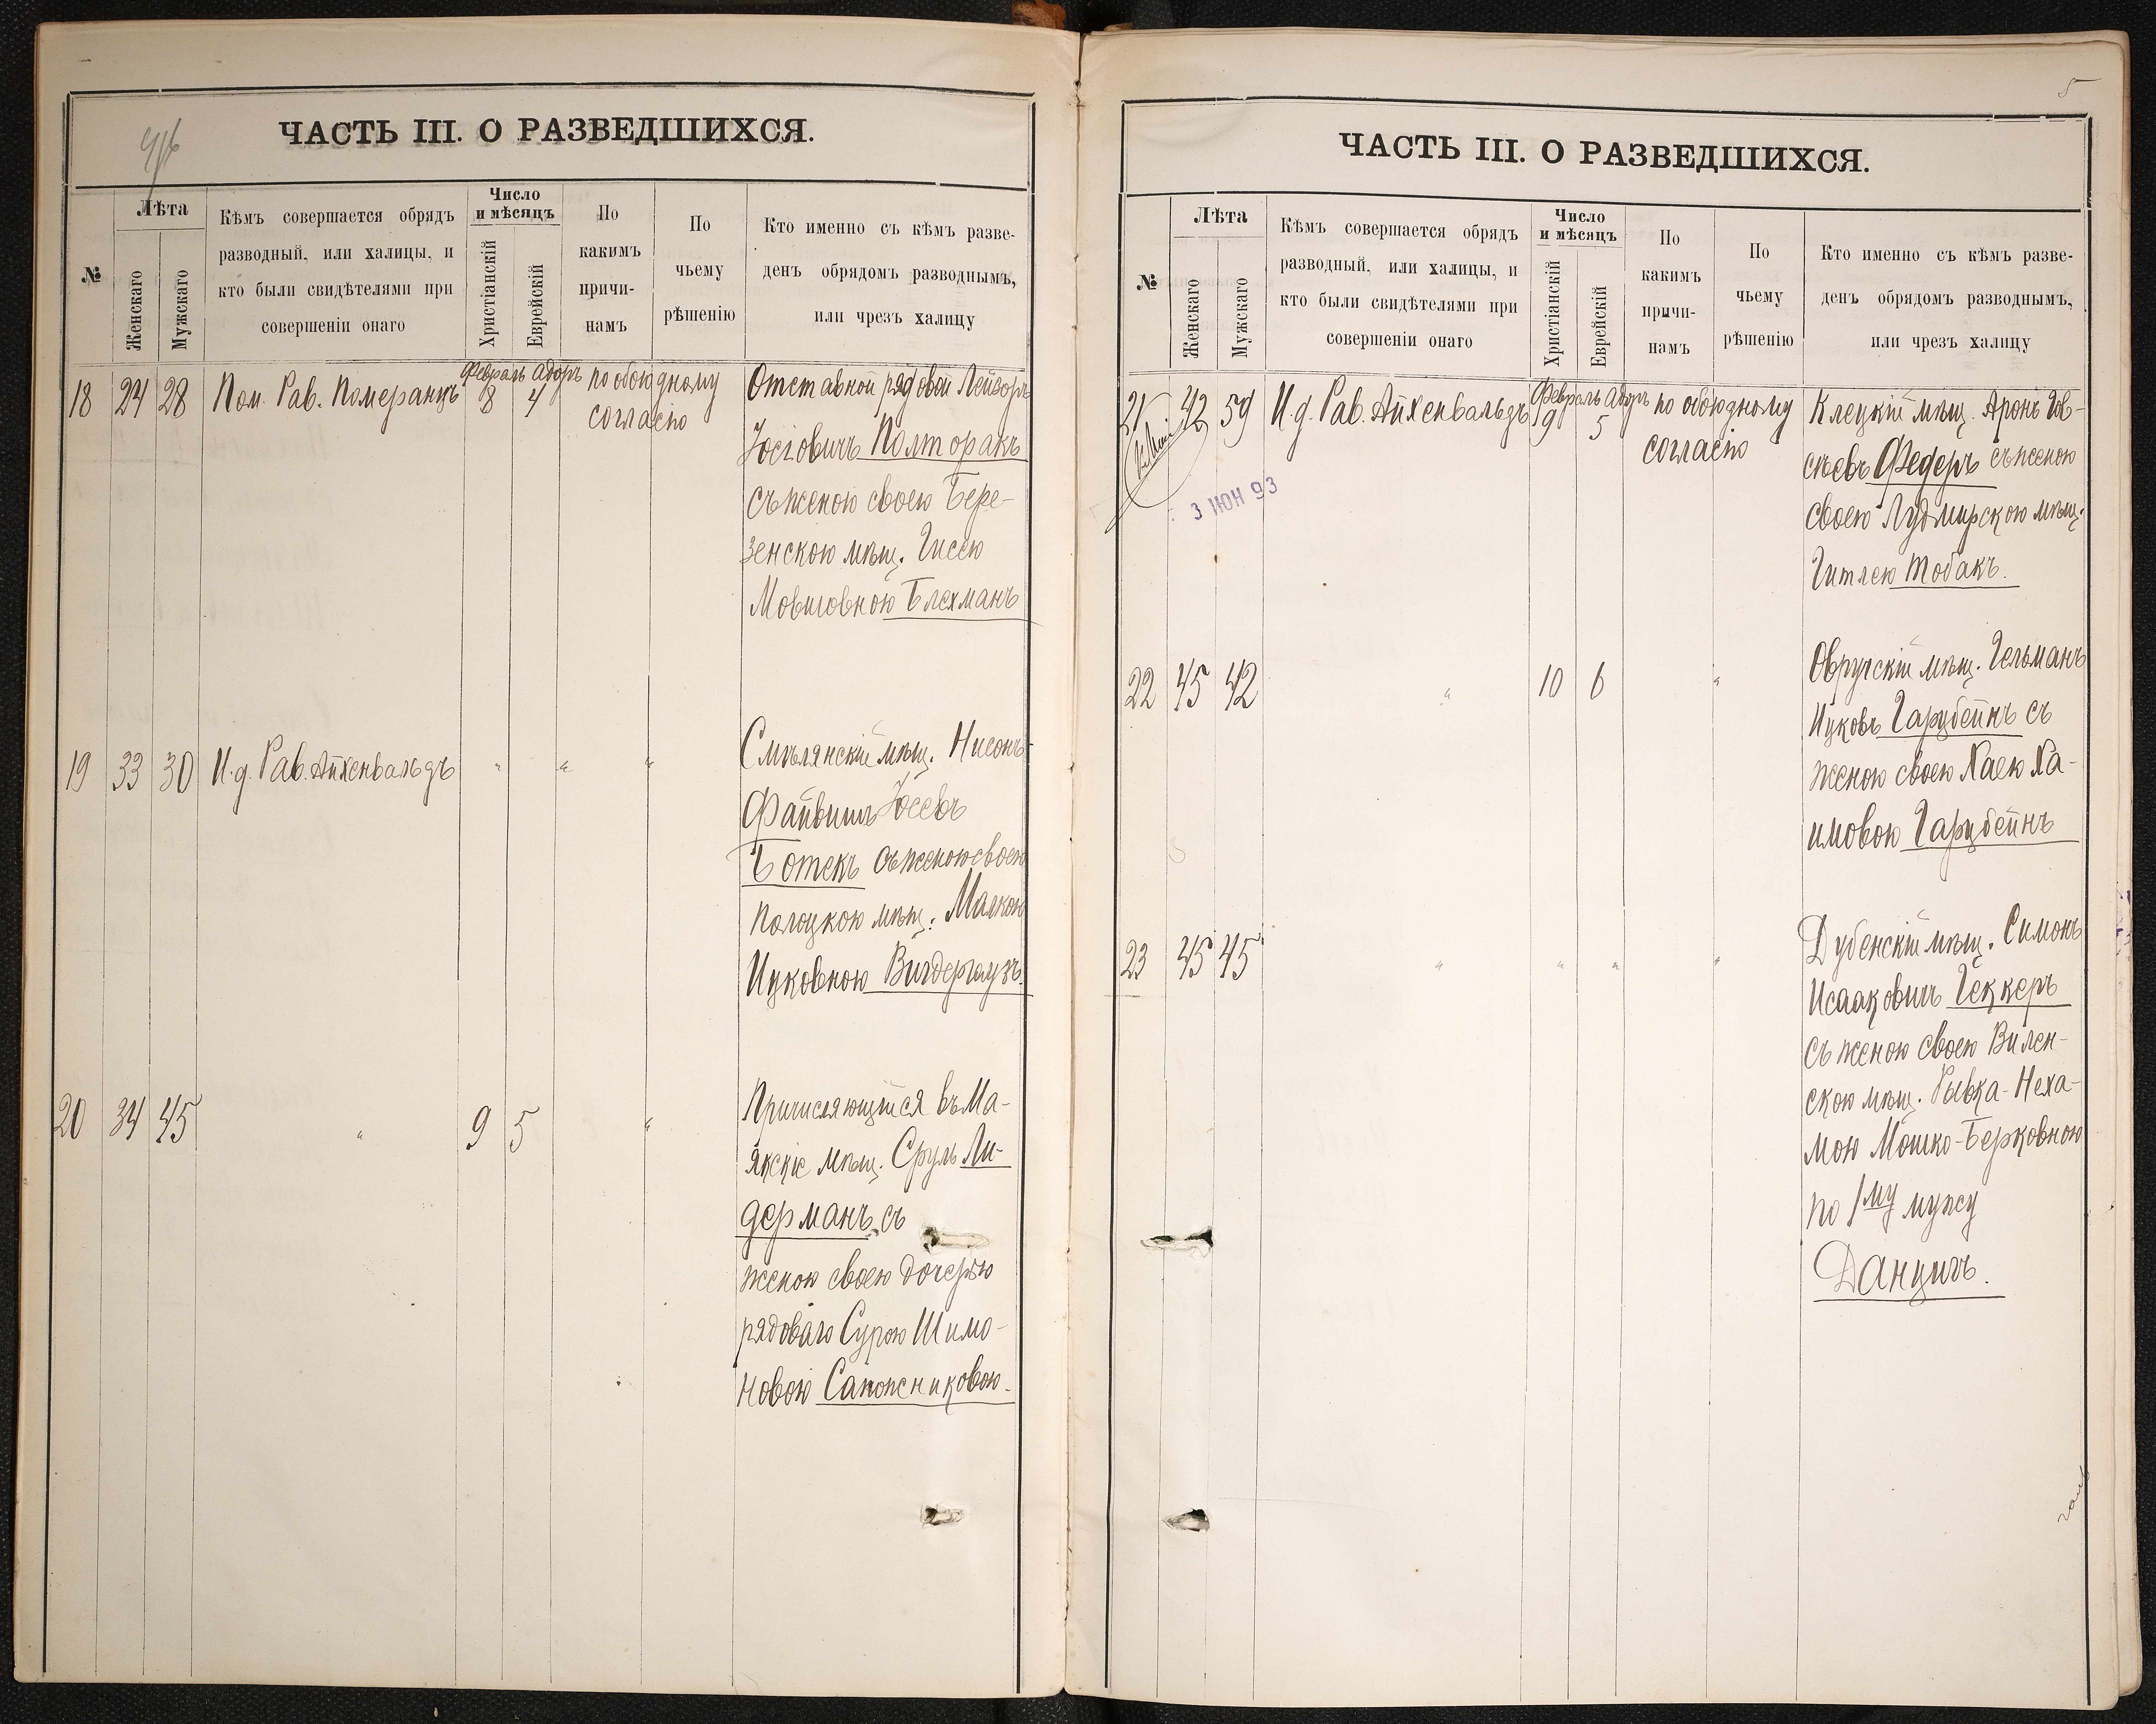 ЧАСТЬ III. О РАЗВЕДШИХСЯ.
№
Лѣта
Женскаго
Мужскаго
Кѣмъ совершается обрядъ
разводный, или халицы, и
кто были свидѣтелями при
совершеніи онаго
Число
и мѣсяцъ
Христіанскій
Еврейскій
По
какимъ
причи-
намъ
По
чьему
рѣшенію
Кто именно съ кѣмъ разве-
денъ обрядомъ разводнымъ,
или чрезъ халицу
18 24 28 Пом. Рав. Померанцъ Февраль 8 Адоръ 4 по обоюдному
согласію
Отставной рядовой Лейзоръ
Іосіовичъ Полторакъ
съ женою своею Бере-
зенскою мѣщ. Гисею
Мовшовною Блехманъ
19 33 30 И.д. Рав. Айхенвальдъ " " "
Смѣлянскій мѣщ. Нисонъ-
Файвишъ Іосевъ
Ботекъ съ женою своею
Полоцкою мѣщ. Малкою
Ицковною Вигдергаузъ.
20 34 45 " 9 5 "
Причисляющійся въ Ма-
якскіе мѣщ. Сруль Ли-
дерманъ съ
женою своею дочерью
рядоваго Сурою Шимо-
новою Сапожниковою.
5
ЧАСТЬ III. О РАЗВЕДШИХСЯ.
№
Лѣта
Женскаго
Мужскаго
Кѣмъ совершается обрядъ
разводный, или халицы, и
кто были свидѣтелями при
совершеніи онаго
Число
и мѣсяцъ
Христіанскій
Еврейскій
По
какимъ
причи-
намъ
По
чьему
рѣшенію
Кто именно съ кѣмъ разве-
денъ обрядомъ разводнымъ,
или чрезъ халицу
21 42 59 И.д. Рав. Айхенвальдъ Февраль 9 Адоръ 5 по обоюдному
согласію
3 ІЮН 93
Клецкій мѣщ. Аронъ Іов-
сѣевъ Федеръ съ женою
своею Лудмирскою мѣщ.
Гитлею Тобакъ.
22 45 42 " 10 6 "
Овручскій мѣщ. Гельманъ
Ицковъ Гарцбейнъ съ
женою своею Хаею Ха-
имовою Гарцбейнъ
23 45 45 " " " "
Дубенскій мѣщ. Симонъ
Исааковичъ Геккеръ
съ женою своею Вилен-
скою мѣщ. Рывка-Неха-
мою Мошко-Берковною
по 1му мужу
Данцигъ.